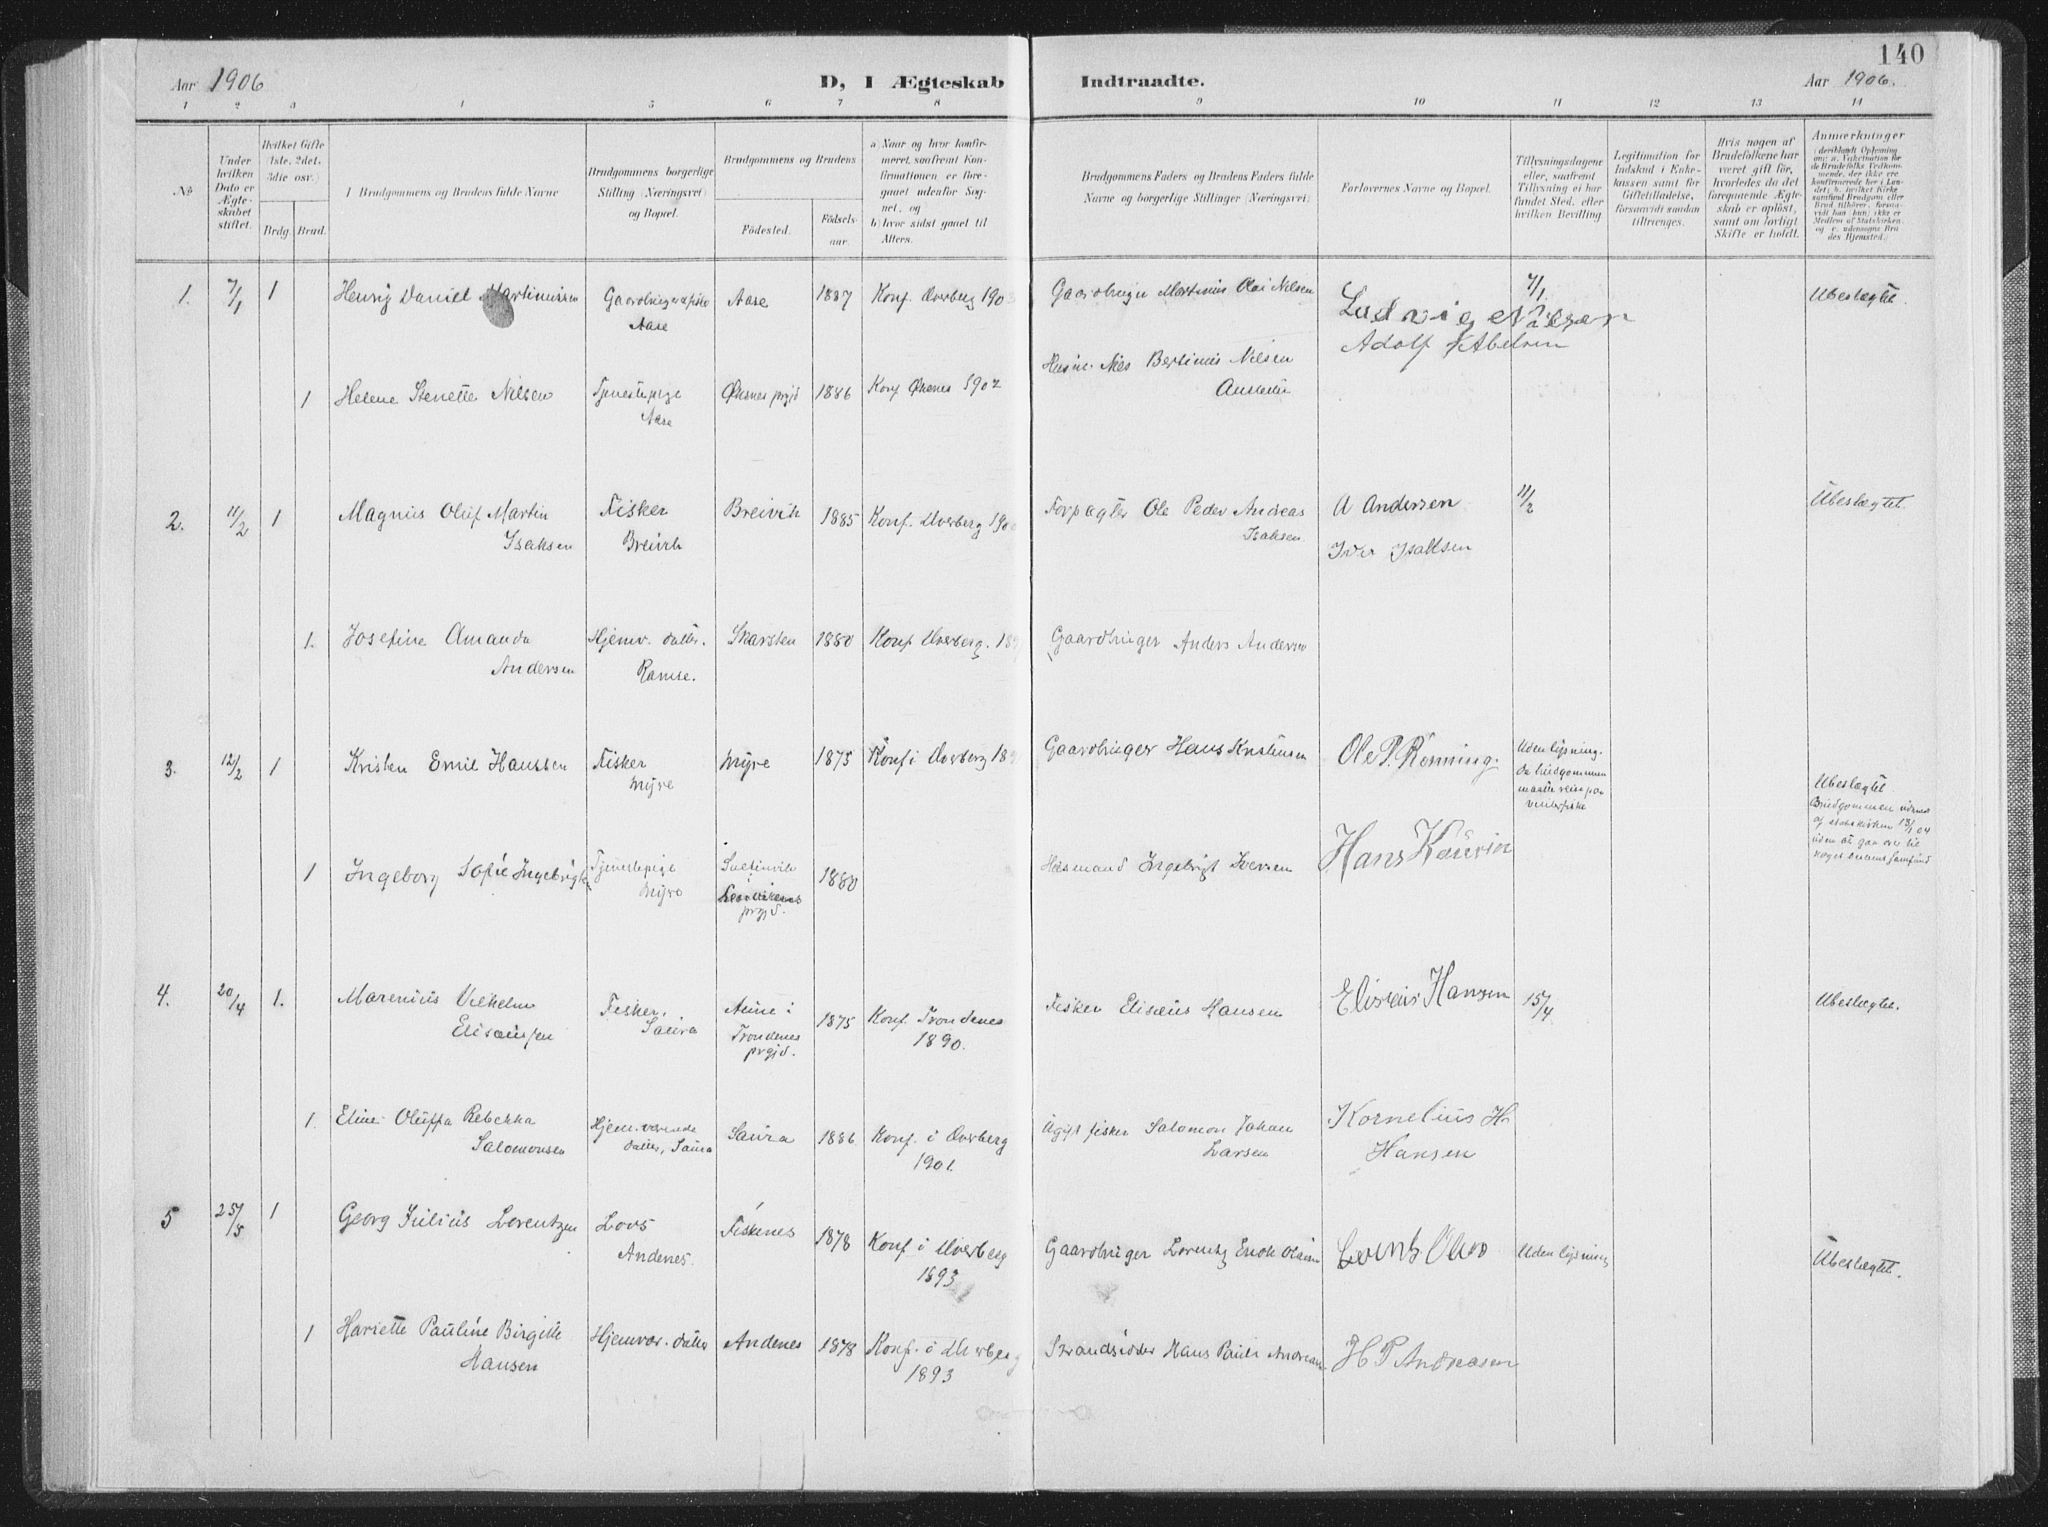 140
Aar 1906
D, I Ægteskab Indtraadte.
Aar 1906.
1 2 3 4 5 6 7 8 9 10 11 12 13 14
No
Under hvilken Dato er Ægteskabet stiftet.
Hvilket Gifte (1ste, 2det, 3die osv.)
Brdg. Brud.
Brudgommens og Brudens fulde Navne
Brudgommens borgerlige Stilling (Næringsvei) og Bopæl.
Brudgommens og Brudens
Fødested.
Fødselsaar.
a) Naar og hvor konfirmeret, saafremt Konfirmationen er foregaaet udenfor Sognet, og
b) hvor sidst gaaet til Alters.
Brudgommens Faders og Brudens Faders fulde Navne og borgerlige Stillinger (Næringsvei)
Forlovernes Navne og Bopæl.
Tillysningsdagene eller, saafremt Tillysning ei har fundet Sted, efter hvilken Bevilling
Legitimation for Indskud i Enkekassen samt for Giftetilladelse, forsaavidt saadan tiltrænges.
Hvis nogen af Brudefolkene har været gift før, hvorledes da det foregaaende Ægteskab er opløst, samt om lovligt Skifte er holdt.
Anmærkninger
1. 7/1 1 Henrig Daniel Martinussen
Aase
Aase 1887 Konf. Dverberg
Martinus Olai Nilsen
Ludvig Nilsen
Adolf Abelsen
7/1
Ubeslægtet.
1 Helene Stenette Nilsen
Tjenestepige
Aase
Øksnes prgjd 1886 Konf Øksnes 1902
Nils Bertinus Nilsen
2. 11/2 1 Magnus Oluf Martin
Isaksen
Fisker
Breivik
Breivik 1885 Konf. Dverberg
Forpagter Ole Peder Andreas
Isaksen
A Andersen
Iver Isaksen
11/2
Ubeslægtet.
1. Josefine Amanda
Andersen
Hjemv. datter.
Ramse.
Skarsten 1880 Konf Dverberg.
Gaardbruger Anders Andersen
3. 12/2 1 Kristen Emil Hanssen
Fisker
Myre
Myre 1875 Konf i Dverberg
Gaardbruger Hans Kristensen
Ole P. Rønning.
Uden lysning.
da brudgommen
maatte reise paa
vinterfiske
Ubeslægtet
Brudgommen udmeldt
af statskirken 13/1 04
uden at gaa over til
noget andet samfund
1 Ingeborg Sofie
Tjenestepige
Myre
prgjd.
1880
Husmand Ingebrigt Iversen
Hans Kaurin
4. 20/4 1. Marenius Vilhelm
Elisæussen
Fisker,
Saura
i
Trondenes
prgjd.
1875 Konf. Trondenes
1890.
Fisker Elisæus Hansen
Elisæus Hansen
15/4
Ubeslægtet.
1. Eline Oluffa Rebekka
Salomonsen
Hjemværende
datter, Saura
Saura 1886 Konf. i Dverberg
1901.
Ugift fisker Salomon Johan
Larsen
Kornelius H.
Hansen
5 25/5 1 Georg Julius Lorentzen
Lods
Andenes.
Fiskenes 1878 Konf i Dverberg
1893
Gaardbruger Lorentz Enok
Uden lysning
Ubeslægtet.
1 Hariette Pauline Birgitte
Hansen
Hjemvær. datter
Andenes 1878 Konf. i Dverberg
1893
Strandsidder Hans Paul
H P Andreasen